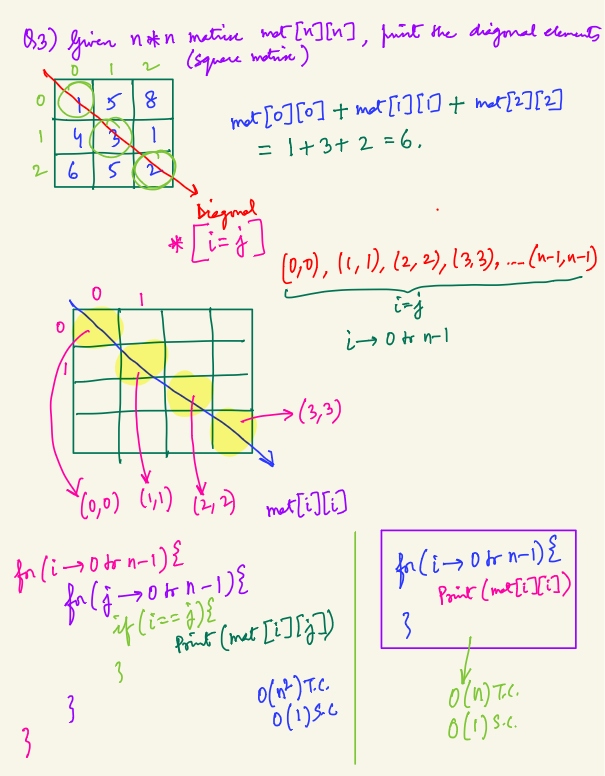 Q.3) Given n*n matrix mat[n][n], print the diagonal elements
(square matrix)
0 1 2
0 1 5 8
1 4 3 1
2 6 5 2
mat[0][0] + mat[1][1] + mat[2][2]
= 1+3+2 = 6.
Diagonal
* [i=j]
(0,0), (1,1), (2,2), (3,3), ....(n-1,n-1)
i=j
i → 0 to n-1
0 1
0
1
(3,3)
(0,0) (1,1) (2,2)
mat[i][i]
for(i → 0 to n-1){
for(j → 0 to n-1){
if(i==j){
Print(mat[i][j])
}
}
}
O(n²) T.C.
O(1) S.C
for(i → 0 to n-1){
Print(mat[i][i])
}
O(n) T.C.
O(1) S.C.